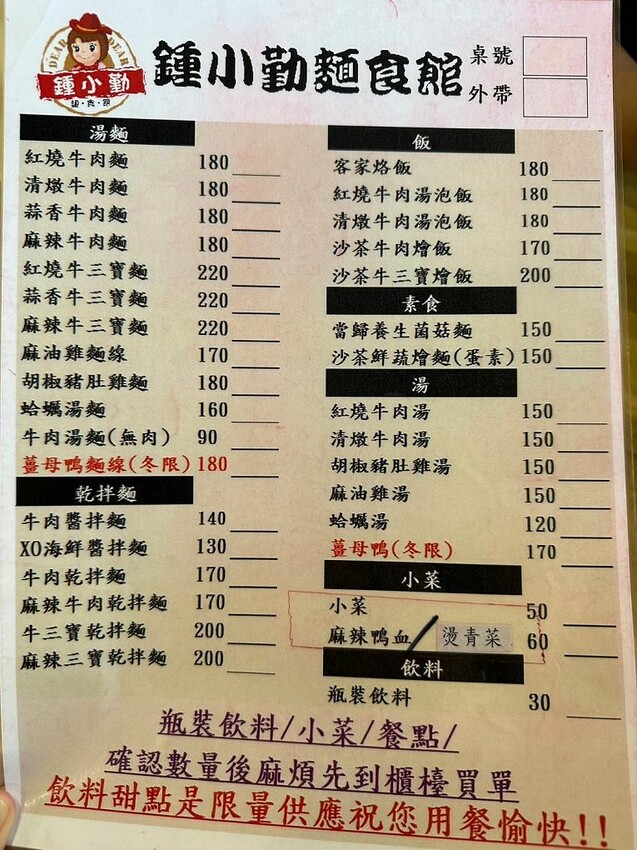 DEAR DEAR
鍾小勤
麵‧食‧館
鍾小勤麵食館
桌號
外帶
湯麵
紅燒牛肉麵 180
清燉牛肉麵 180
蒜香牛肉麵 180
麻辣牛肉麵 180
紅燒牛三寶麵 220
蒜香牛三寶麵 220
麻辣牛三寶麵 220
麻油雞麵線 170
胡椒豬肚雞麵 180
蛤蠣湯麵 160
牛肉湯麵(無肉) 90
薑母鴨麵線(冬限) 180
乾拌麵
牛肉醬拌麵 140
XO海鮮醬拌麵 130
牛肉乾拌麵 170
麻辣牛肉乾拌麵 170
牛三寶乾拌麵 200
麻辣三寶乾拌麵 200
飯
客家烙飯 180
紅燒牛肉湯泡飯 180
清燉牛肉湯泡飯 180
沙茶牛肉燴飯 170
沙茶牛三寶燴飯 200
素食
當歸養生菌菇麵 150
沙茶鮮蔬燴麵(蛋素) 150
湯
紅燒牛肉湯 150
清燉牛肉湯 150
胡椒豬肚雞湯 150
麻油雞湯 150
蛤蠣湯 120
薑母鴨(冬限) 170
小菜
小菜 50
麻辣鴨血/燙青菜 60
飲料
瓶裝飲料 30
瓶裝飲料/小菜/餐點/
確認數量後麻煩先到櫃檯買單
飲料甜點是限量供應祝您用餐愉快!!